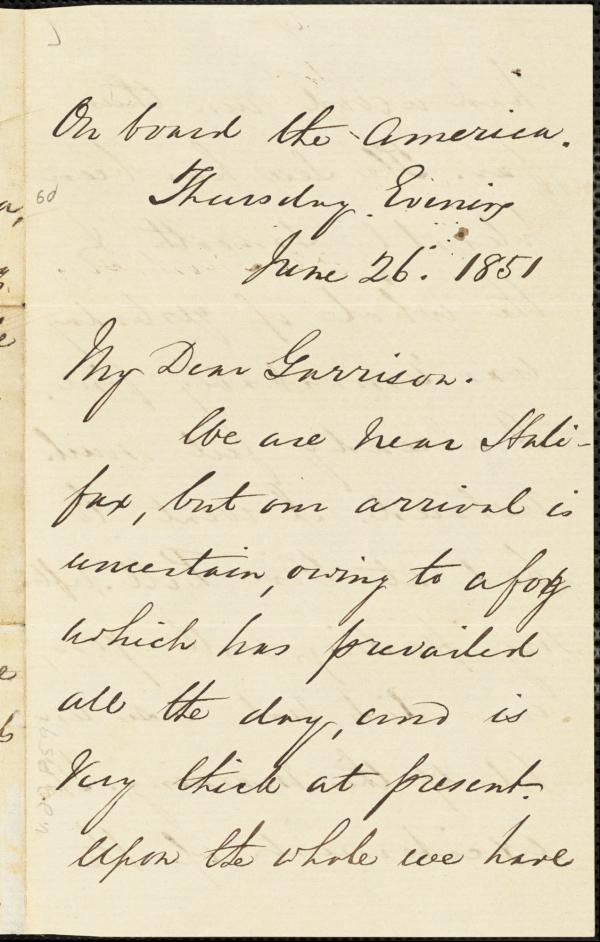 On board the America.
Thursday Evening
June 26. 1851
My Dear Garrison.
We are near Hali-
fax, but our arrival is
uncertain, owing to a fog
which has prevailed
all the day, and is
very thick at present.
Upon the whole we have